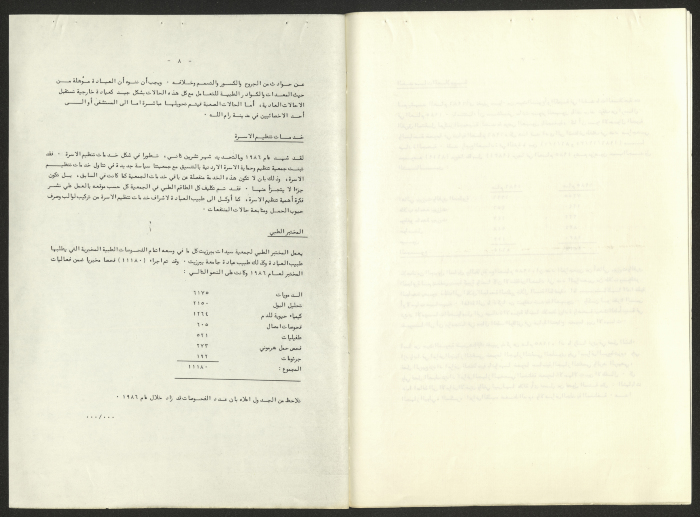 - ٨ -
عن حوادث من الجروح والكسور والتسمم وخلافه ٠ ويجب أن ننوه أن العيادة مؤهلة مـن
حيث المعدات والكوادر الطبية للتعامل مع كل هذه الحالات بشكل جيد كعيادة خارجية تستقبل
الحالات العادية، أما الحالات الصعبة فيتم تحويلها مباشرة اما الى المستشفى أو الـى
أحد الاخصائيين في مدينة رام الله ٠
خدمات تنظيم الاسرة
لقد شهد عام ١٩٨٦ وبالتحديد شهر تشرين ثاني، تطورا في شكل خدمات تنظيم الاسرة ٠ فقد
تبنت جمعية تنظيم وحماية الاسرة الاردنية بالتنسيق مع جمعيتنا سياسة جديدة في تناول خدمات تنظيـم
الاسرة، وذلك بان لا تكون هذه الخدمة منفصلة عن باقي خدمات الجمعية كما كانت في السابق، بل تكون
جزءا لا يتجزأ منها ٠ فقد تم تكليف كل الطاقم الطبي في الجمعية كل حسب موقعه بالعمل على نشر
فكرة أهمية تنظيم الاسرة، كما أوكل الى طبيب العيادة الاشراف خدمات تنظيم الاسرة من تركيب لوالب وصرف
حبوب الحمل ومتابعة حالات المنتفعات ٠
المختبر الطبي
يعمل المختبر الطبي لجمعية سيدات بيرزيت كل ما في وسعه اتمام الفحوصات الطبية المخبرية التي يطلبها
طبيب العيادة وكذلك طبيب عيادة جامعة بيرزيت ٠ وقد تم اجراء (١١١٨٠) فحصا مخبريا ضمن فعاليات
المختبر لعام ١٩٨٦ وكانت على النحو التالي :
الدمويات ٦١٧٥
تحليل البول ٢١٥٠
كيمياء حيوية للدم ١٢٦٤
فحوصات اعمال ٦٠٥
طفيليات ٥٢١
فحص حمل هرموني ٢٧٣
جرثومات ١٩٢
المجموع : ١١١٨٠
نلاحظ من الجدول اعلاه بان عدد الفحوصات قد زاد خلال عام ١٩٨٦ ٠
٠٠٠/٠٠٠